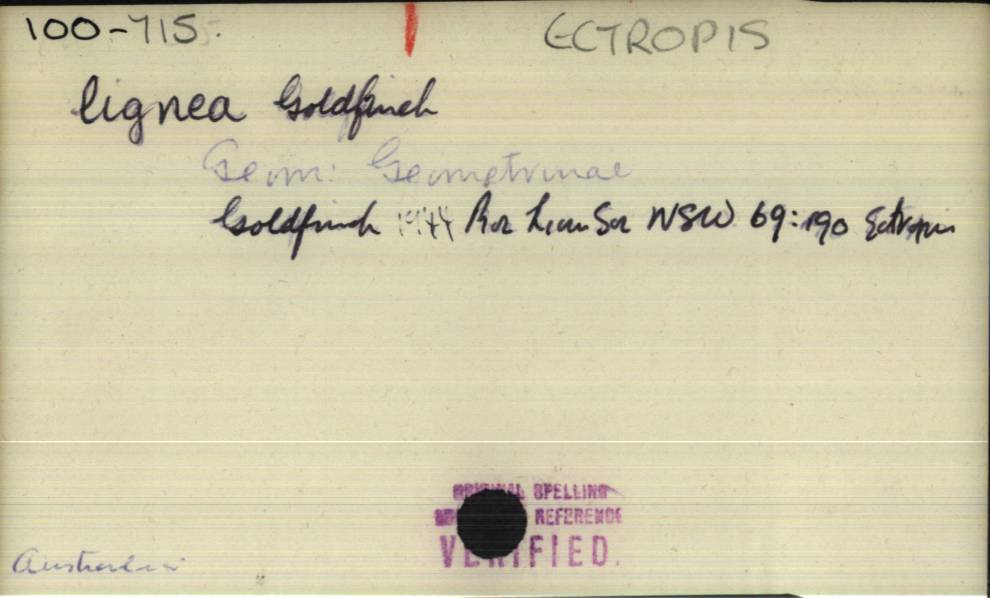 100-715. ECTROPIS
lignea Goldfinch
Geom: Geometrinae
Goldfinch 1944 Proc Linn Soc NSW 69:190 Ectropis
ORIGINAL SPELLING
REFERENCE
VERIFIED.
Australia